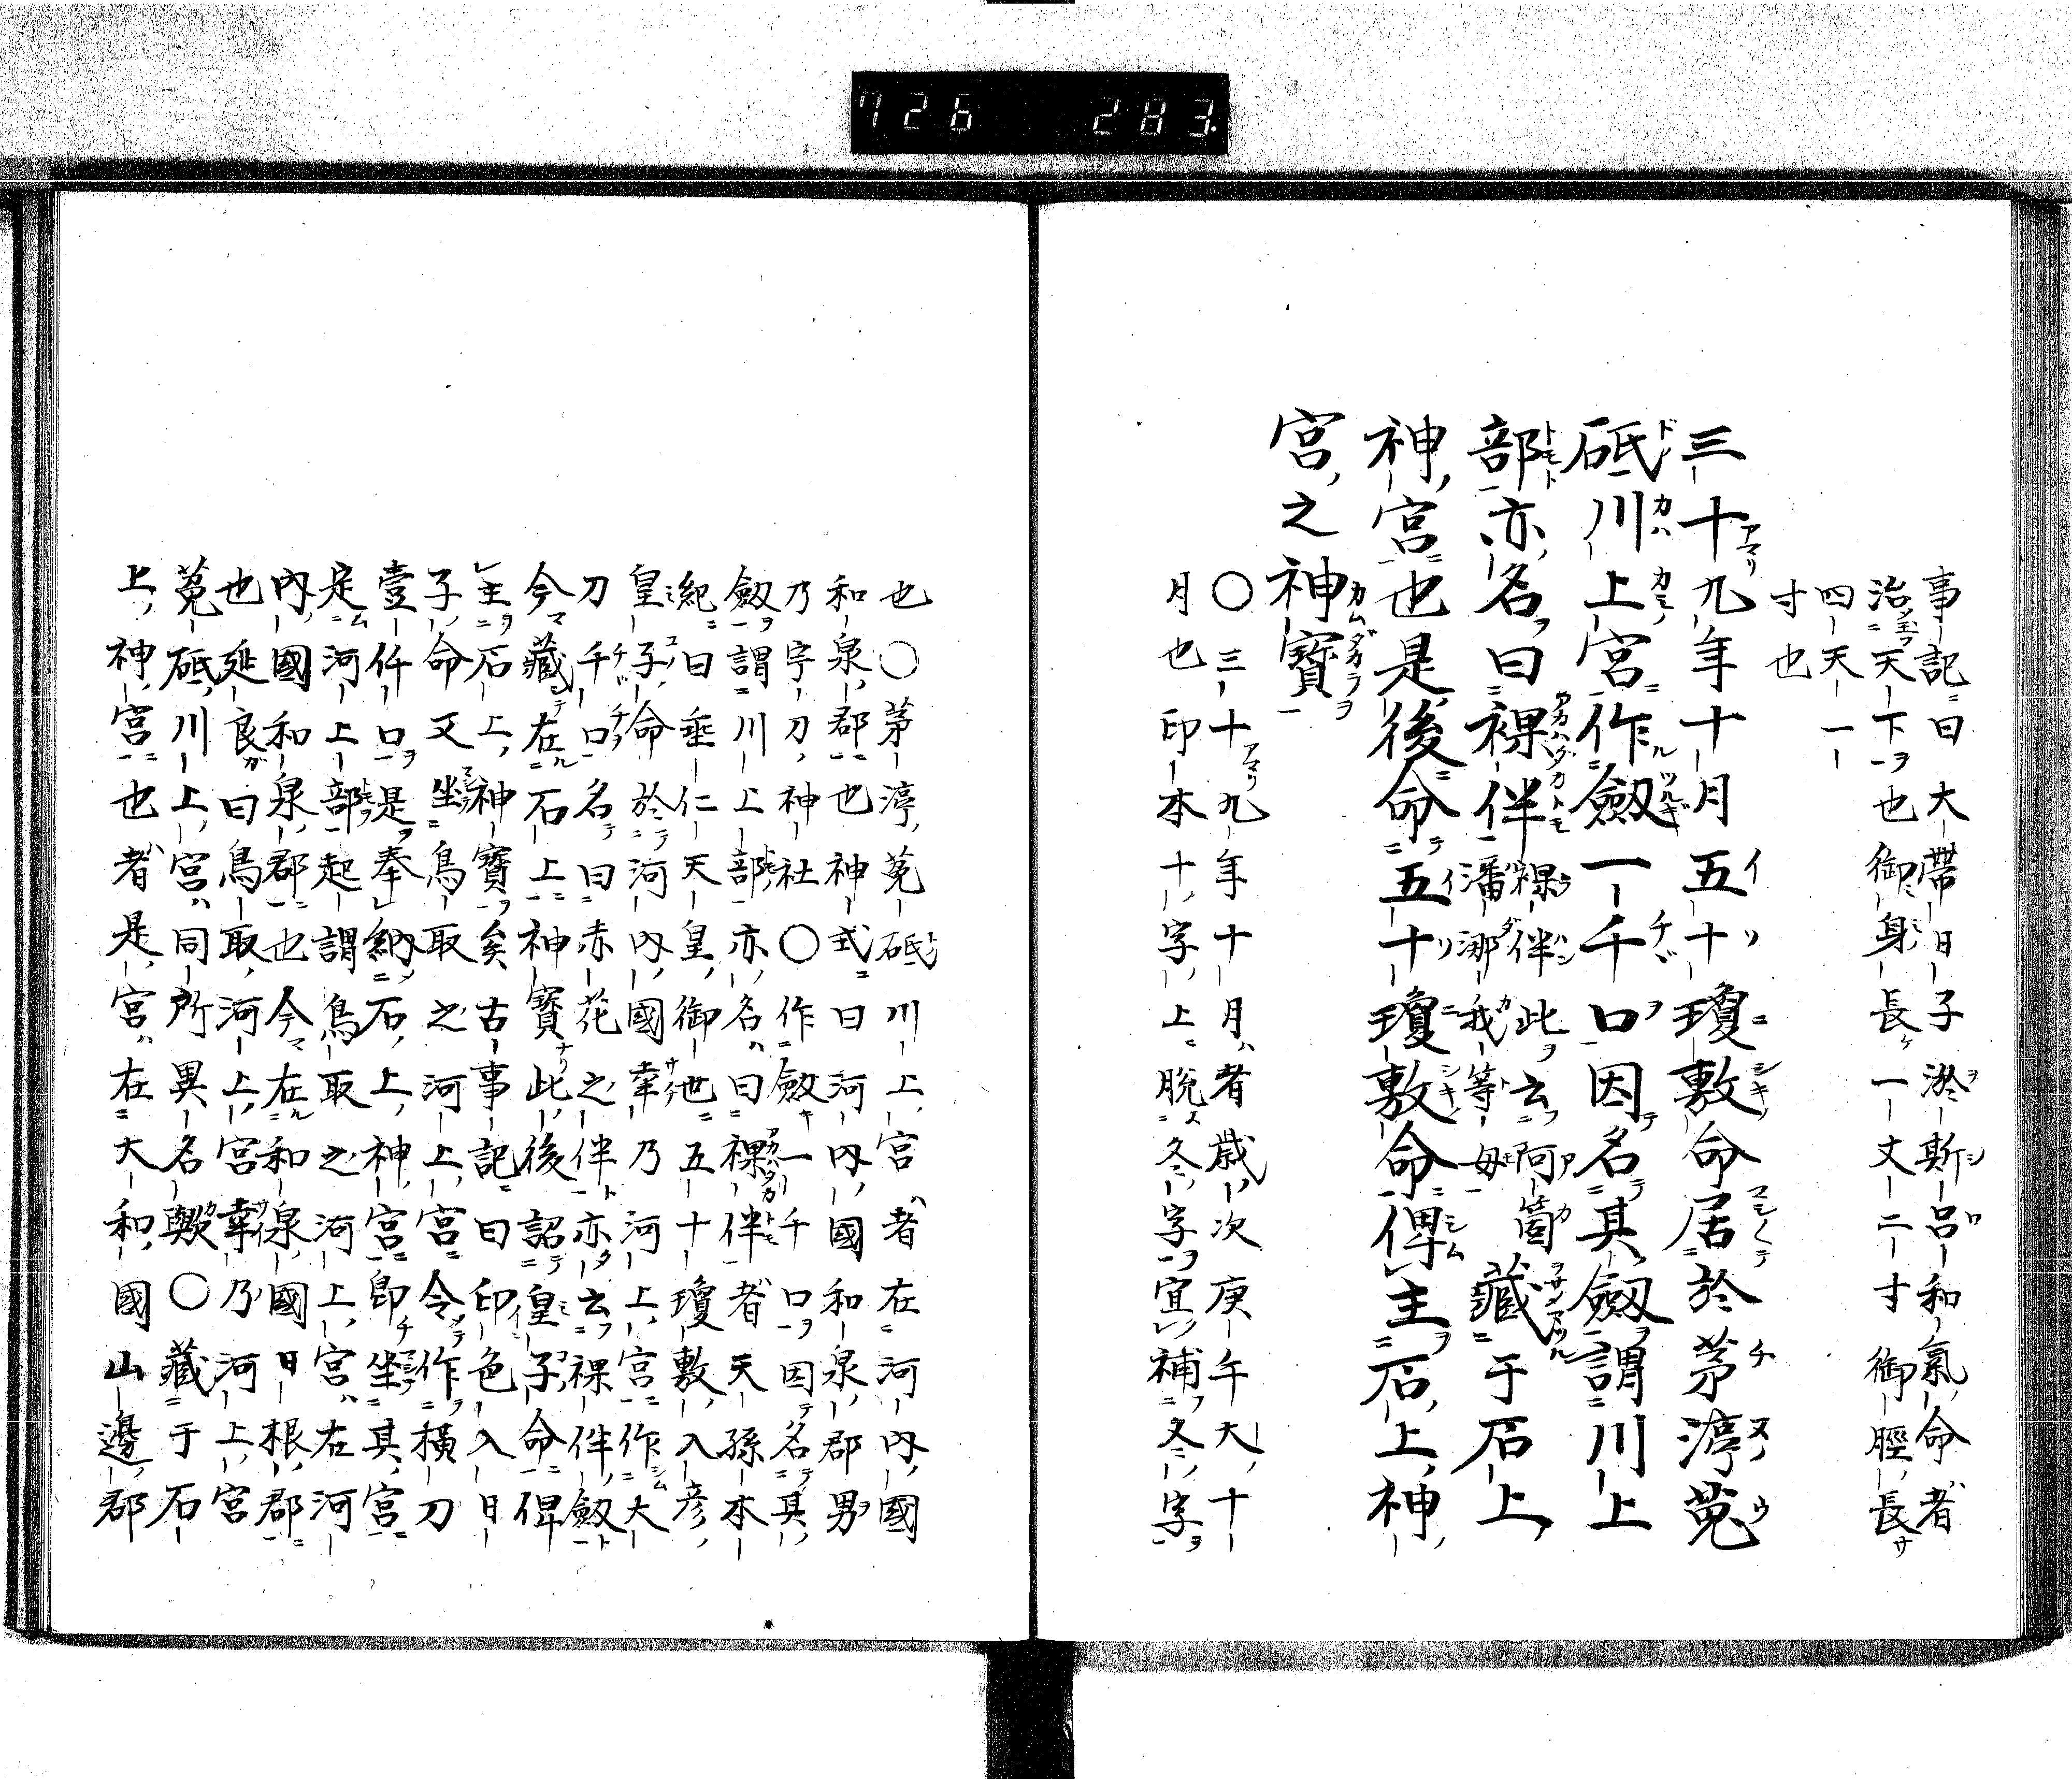 726 283
事記曰大帶日子淤斯呂和氣命者
治天下也御身長一丈二寸御脛長
四天一
寸也
三十九年十月五十瓊敷命居於茅渟菟
砥川上宮作劔一千口因名其劔謂川上
部亦名曰裸伴裸伴此云阿箇潘娜我等母藏于石上
神宮也是後命五十瓊敷命俾主石上神
宮之神寶
〇三十九年十月者歲次庚午大十
月也印本十字上脫冬字宜補冬字
也〇茅渟菟砥川上宮者在河內國
和泉郡也神式曰河內國和泉郡男
乃宇刀神社〇作劔一千口因名其
劔謂川上部亦名曰裸伴者天孫本
紀曰垂仁天皇御世五十瓊敷入彥
皇子命於河內國幸乃河上宮作大
刀千口名曰赤花之伴亦云裸伴劔
今藏在石上神寶此後詔皇子命俾
主石上神寶矣古事記曰印色入日
子命又坐鳥取之河上宮令作橫刀
壹仟口是奉納石上神宮卽坐其宮
定河上部起謂鳥取之河上宮右河
內國和泉郡也今在和泉國日根郡
也延良曰鳥取河上宮幸乃河上宮
菟砥川上宮同所異名歟〇藏于石
上神宮也者是宮在大和國山邊郡